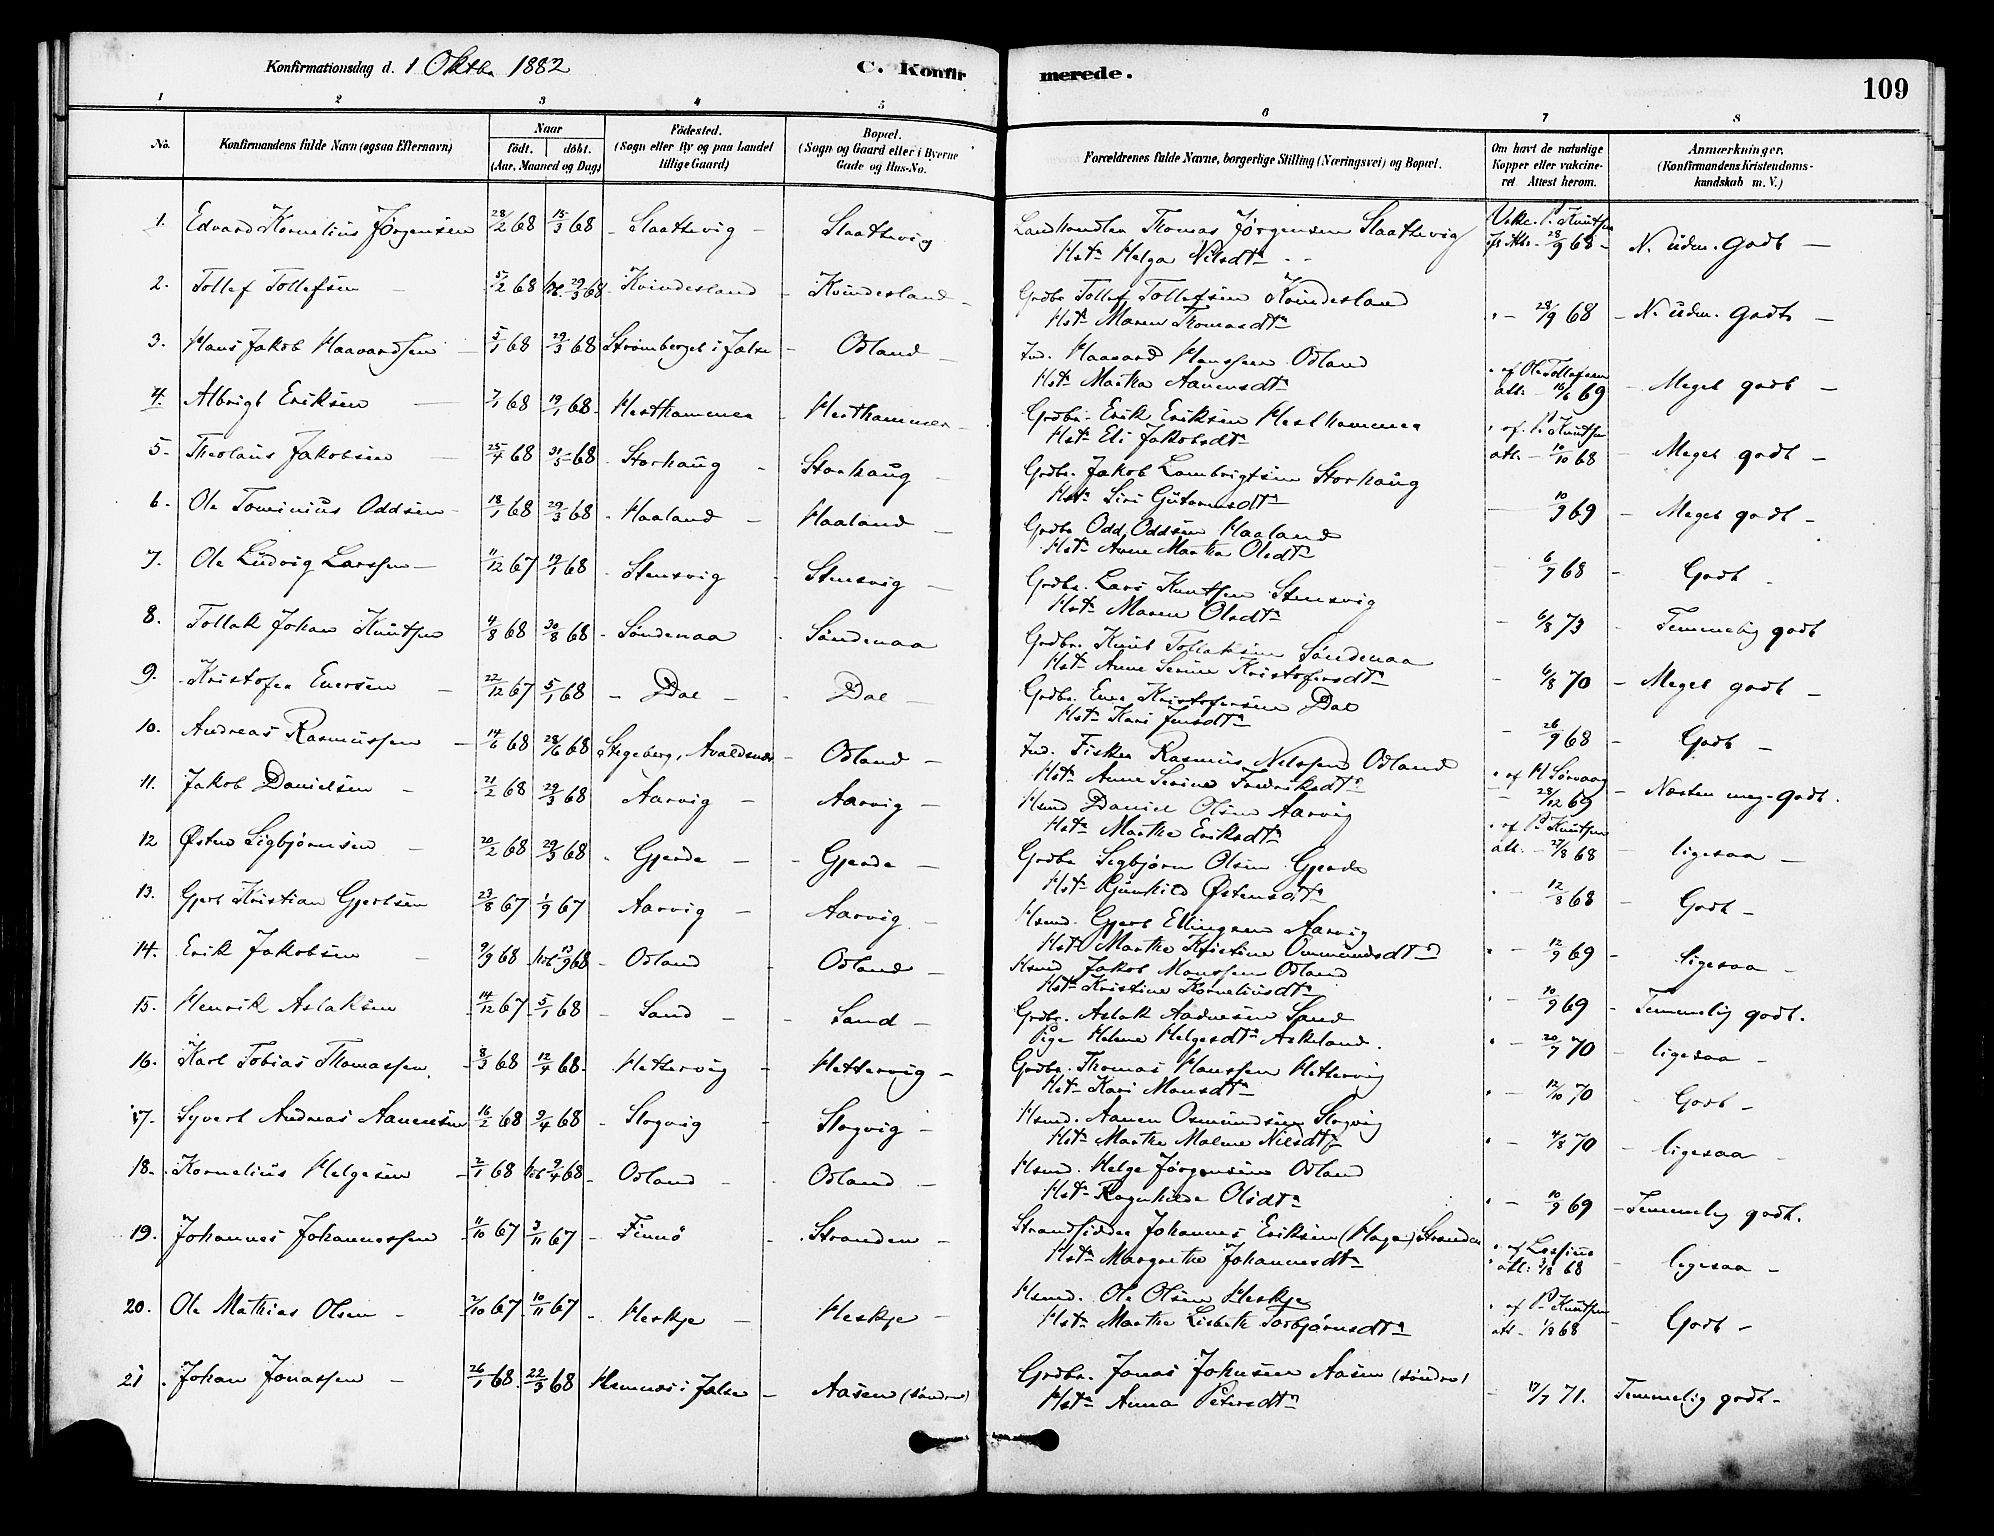 Konfirmationsdag d. 1 Oktbr 1882
C. Konfirmerede.
109
1 2 3 4 5 6 7 8
No.
Konfirmandens fulde Navn (ogsaa Efternavn)
Naar
födt. döbt.
(Aar, Maaned og Dag)
Födested.
(Sogn eller By og paa Landet
tillige Gaard)
Bopæl.
(Sogn og Gaard eller i Byerne
Gade og Hus-No.
Forældrenes fulde Navne, borgerlige Stilling (Næringsvei) og Bopæl.
Om havt de naturlige
Kopper eller vakcine-
ret Attest herom.
Anmærkninger.
(Konfirmandens Kristendoms-
kundskab m. V.)
1. Edvard Kornelius Jørgensen 28/2 68 15/3 68 - Slaattevig - Slaattevig Landhandler Thomas Jørgensen Slaattevig Vakc. P. Knutsen
Hst. Helga Nilsdtr 28/9 68 - N. udm. godt -
2. Tollef Tollefsen 5/2 68 29/3 68 - Kvindesland - Kvindesland - Grdbr. Tollef Tollefsen Kvindesland
Hst. Maren Thomasdtr - 28/9 68 - N. udm. godt -
3. Hans Jakob Haavardsen 5/1 68 29/3 68 Strømberget i Jelse - Odland - Ind. Haavard Hanssen Odland " af Ole Tollefsen
Hst. Martha Aanensdtr att. - 16/6 69 - Meget godt -
4. Albrigt Eriksen 7/1 68 19/1 68 - Hesthammer - Hesthammer - Grdbr. Erik Eriksen Hesthammer " af P. Knutsen
Hst. Eli Jakobsdtr att. - 10/10 68 - Meget godt -
5. Theolaus Jakobsen 25/4 68 31/5 68 - Storhaug - Storhaug - Grdbr. Jakob Lambrigtsen Storhaug
Hst. Siri Gutormsdtr 10/9 69 - Meget godt -
6. Ole Tominius Oddsen 18/1 68 29/3 68 - Haaland - Haaland - Grdbr. Odd Oddsen Haaland
Hst. Anne Martha Olsdtr - 6/7 68 - Godt -
7. Ole Ludvig Larssen - 11/12 67 19/1 68 - Stensvig - Stensvig - Grdbr. Lars Knutsen Stensvig
Hst. Maren Olsdtr - 6/8 73 - Temmelig godt
8. Tollak Johan Knutsen 4/8 68 30/8 68 - Søndenaa - Søndenaa Grdbr. Knut Tollaksen Søndenaa
Hst. Anne Serine Kristofersdtr - 6/8 70 - Meget godt -
9. Kristofer Enersen - 22/12 67 5/1 68 - Dal - Dal - Grdbr. Ener Kristofersen Dal
Hst. Kari Jensdtr - 26/9 68 - Godt -
10. Andreas Rasmussen - 14/6 68 28/6 68 Stegeberg, Avaldsnæs - Odland - Ind. Fisker Rasmus Nilssen Odland " af H. Sørvaag
Hst. Anne Serine Fredriksdtr 28/12 69 - Næsten meg. godt.
11. Jakob Danielsen - 21/2 68 29/3 68 - Aarvig - Aarvig - Hsmd Daniel Olsen Aarvig " af P. Knutsen
Hst. Marthe Eriksdtr att. - 27/8 68 - ligesaa -
12 Østen Sigbjørnsen - 20/2 68 29/3 68 - Gjerde - Gjerde - Grdbr. Sigbjørn Olsen Gjerde
Hst. Gunhild Østensdtr " - 12/8 68 - Godt -
13. Gjert Kristian Gjertsen 23/8 67 1/9 67 - Aarvig - Aarvig - Hsmd. Gjert Ellingsen Aarvig
Hst. Marthe Kristine Ommundsdtr " - 12/9 69 - ligesaa -
14. Erik Jakobsen - 9/9 68 13/9 68 - Odland - Odland - Hsmd Jakob Monssen Odland
Hst. Kristine Korneliusdtr " - 10/9 69 - Temmelig godt.
15. Henrik Aslaksen 14/12 67 5/1 68 - Sand - Sand - Grdbr. Aslak Aadnesen Sand
Pige Helene Helgesdtr Askeland. " - 20/7 70 - ligesaa -
16. Karl Tobias Thomassen. 8/3 68 12/4 68. - Hettervig - Hettervig - Grdbr. Thomas Hanssen Hettervig
Hst. Kari Monsdtr " - 12/10 70 - Godt -
17. Syvert Andreas Aanensen 16/2 68 9/4 68 - Slogvig - Slogvig - Hsmd. Aanen Osmundsen Slogvig
Hst. Marthe Malene Nilsdtr " - 4/8 70 - ligesaa -
18. Kornelius Helgesen - 2/1 68 9/4 68 - Odland - Odland - Hsmd. Helge Jørgensen Odland
Hst. Ragnhilde Olsdtr " - 10/9 69 - Temmelig godt.
19. Johannes Johannessen 11/10 67 3/11 67 - Finnø - Stranden - Strandsidder Johannes Eriksen (Hage) Stranden
Hst. Margrethe Johannesdtr att: 3/8 68 - ligesaa -
20. Ole Mathias Olsen - 2/10 67 10/11 67 - Heskje - Heskje - Hsmd. Ole Olsen Heskje " af P. Knutsen
Hst. Marthe Lisbeth Torbjørnsdtr att - 1/8 68 - Godt -
21 Johan Jonassen - 26/1 68 22/3 68 Hamnes i Jelse - Aasen (søndre) Grdbr. Jonas Johnsen Aasen (søndre)
Hst. Anna Petersdtr - 17/7 71. Temmelig godt -